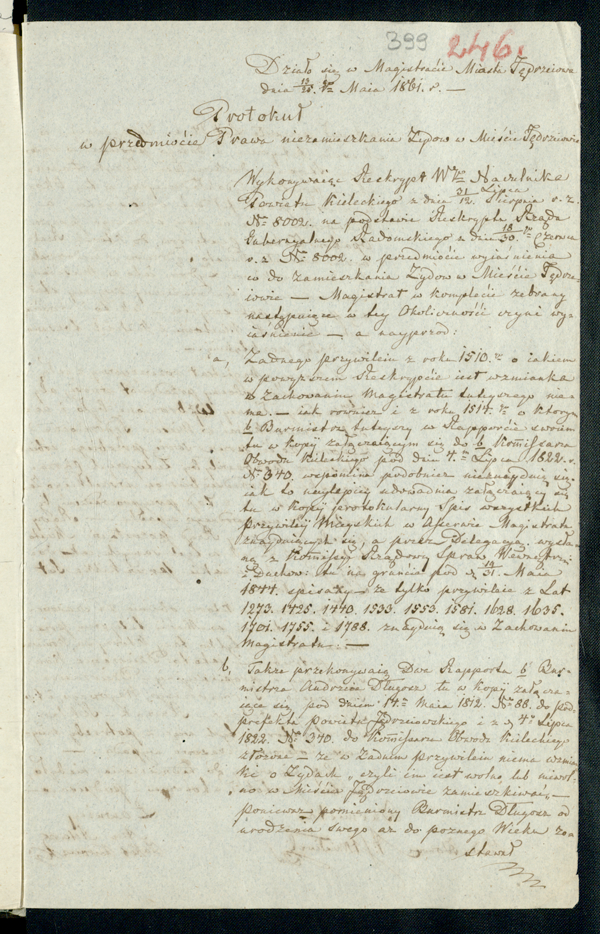 399 246.
Działo się w Magistracie Miasta Jędrzeiowa
dnia 13/25 go Maia 1861. r. —
Protokuł
w przedmiócie Prawa niezamieszkania Żydow w Mieście Jędrzeiowie
Wykonywaiąc Reskrypt Wgo Naczelnika
Powiatu Kieleckiego z dnia 31 Lipca/12 Sierpnia r. z.
No 8002. na podstawie Reskryptu Rządu
Gubernyalnego Radomskiego z dnia 18/30 go Czerwca
r. z. No 8002. w przedmiócie wyiaśnienia
co do zamieszkania Żydow w Mieście Jędrze-
iowie — Magistrat w komplecie zebrany
następuiące w tey Okoliczności czyni wy-
iaśnienie — a nayprzod:
a, Żadnego przywileiu z roku 1510. go o iakiem
w powyższem Reskrypcie iest wzmianka
w zachowaniu Magistratu tuteyszego nie
ma. — iak rownież i z roku 1514. go o ktorym
b. Burmistrz tuteyszy w Rapporcie swoim
tu w kopij załączaiącym się do b. Kommissarza
Obwodu Kieleckiego pod dniem 4. m Lipca 1822. r.
No 340. wspomina podobnież nieznayduie się
iak to naylepiey udowadnia załączaiący się
tu w kopij protokularny Spis wszystkich
przywiley Mieyskich w Aserwie Magistratu
znayduiących się, a przez Delegacyą wysła-
ną z Kommissyi Rządowy Spraw Wewnętrz:
i Duchow: tu na grancie pod d. 19/31. Maia
1844. spisany — że tylko przywileie z Lat
1273. 1425. 1440. 1533. 1553. 1581. 1628. 1635.
1701. 1755. i 1788. znayduią się w Zachowaniu
Magistratu. —
b, Także przekonywaią Dwa Rapporta b. Bur-
mistrza Andrzeia Długosz tu w kopij załącza-
iące się pod dniem 14. m Maia 1812. No 88. do pod-
prefekta powiatu Jędrzeiowskiego i z d. 4. Lipca
1822. No 340. do Kommissarza Obwodu Kieleckiego
złożone — że w Żadnem przywileiu niema wzmian-
ki o Żydach, czyli im iest wolno, lub niewol-
no w Mieście Jędrzeiowie zamieszkiwać —
ponieważ pomieniony Burmistrz Długosz od
urodzenia swego aż do poznego Wieku zo-
stawał